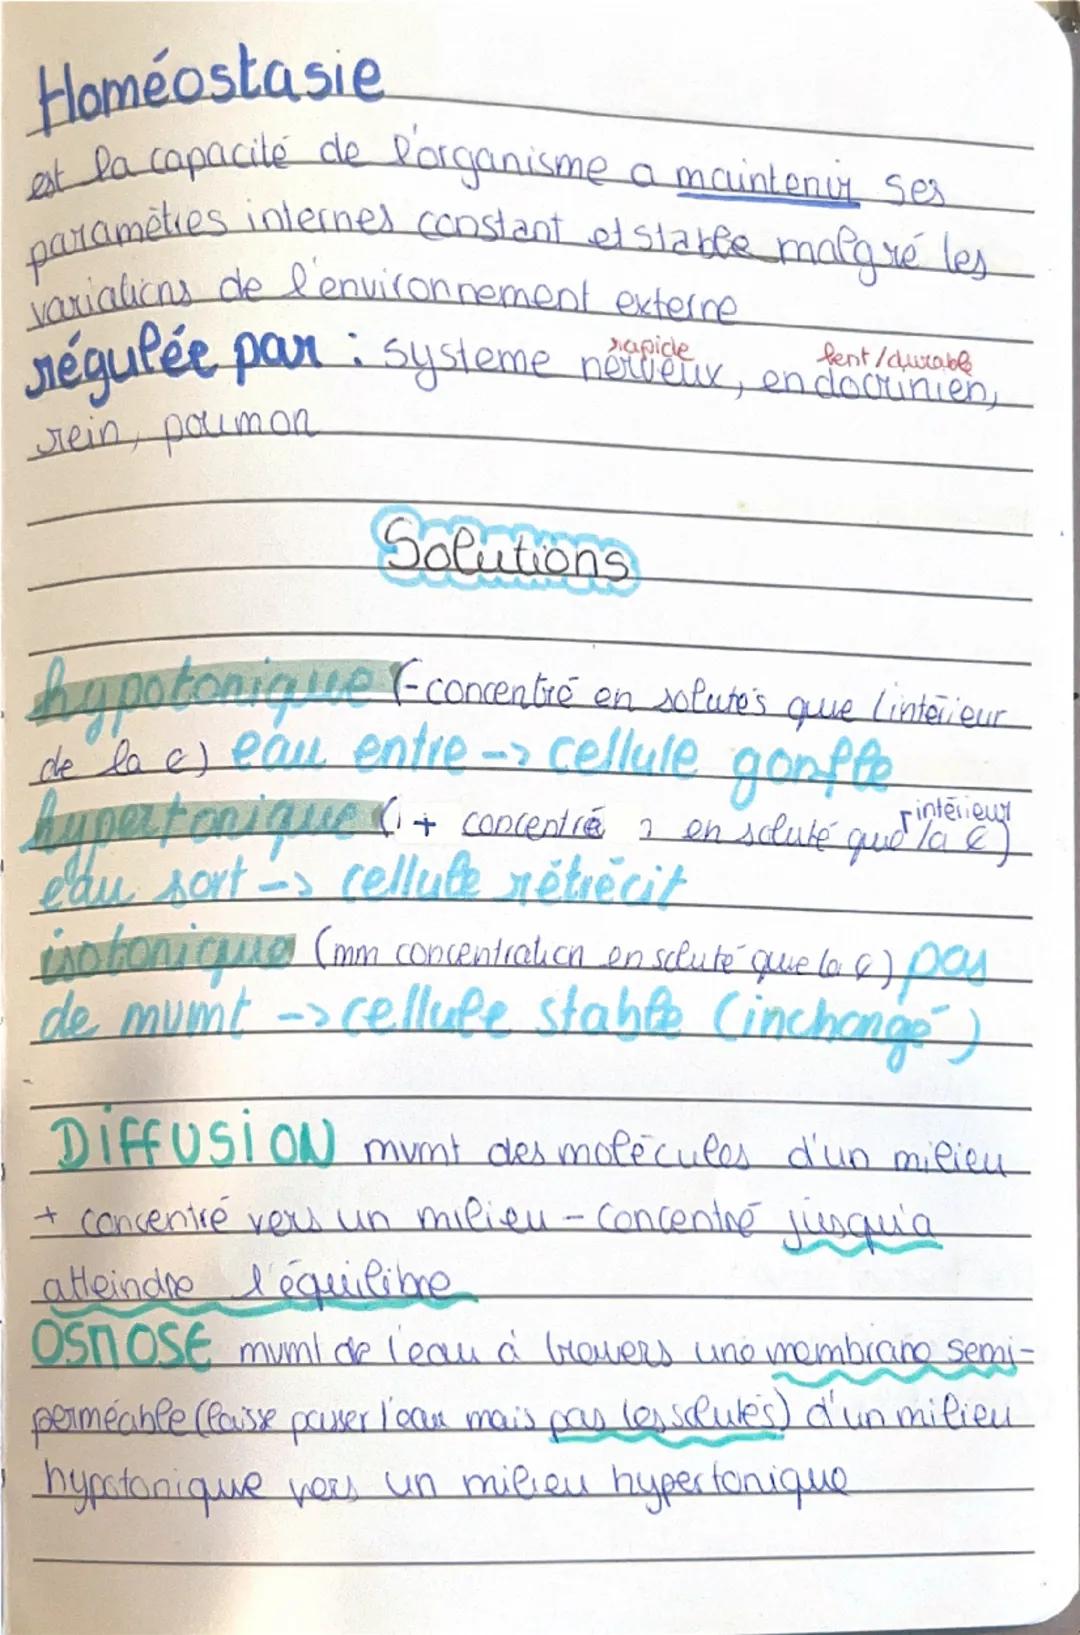 Homéostasie
est la capacité de l'organisme a maintenir ses
paramètres internes constant et stable malgré les
variations de l'environnement externe
rapide lent/durable
régulée par : systeme nerveux, endocrinien,
rein, poumon
Solutions
hypotonique (- concentré en solutés que l'intérieur
de la c) eau entre -> cellule gonfle
intérieur
hypertonique (+ concentré en soluté que la c)
eau sort -> cellule rétrécit
isotonique (mm concentration en soluté que la c) pas
de mvmt -> cellule stable (inchangé)
DIFFUSION mvmt des molécules d'un milieu
+ concentré vers un milieu - concentré jusqu'a
atteindre l'équilibre
OSMOSE mvmt de l'eau à travers une membrane semi-
perméable (laisse passer l'eau mais pas les solutés) d'un milieu
hypotonique vers un milieu hypertonique